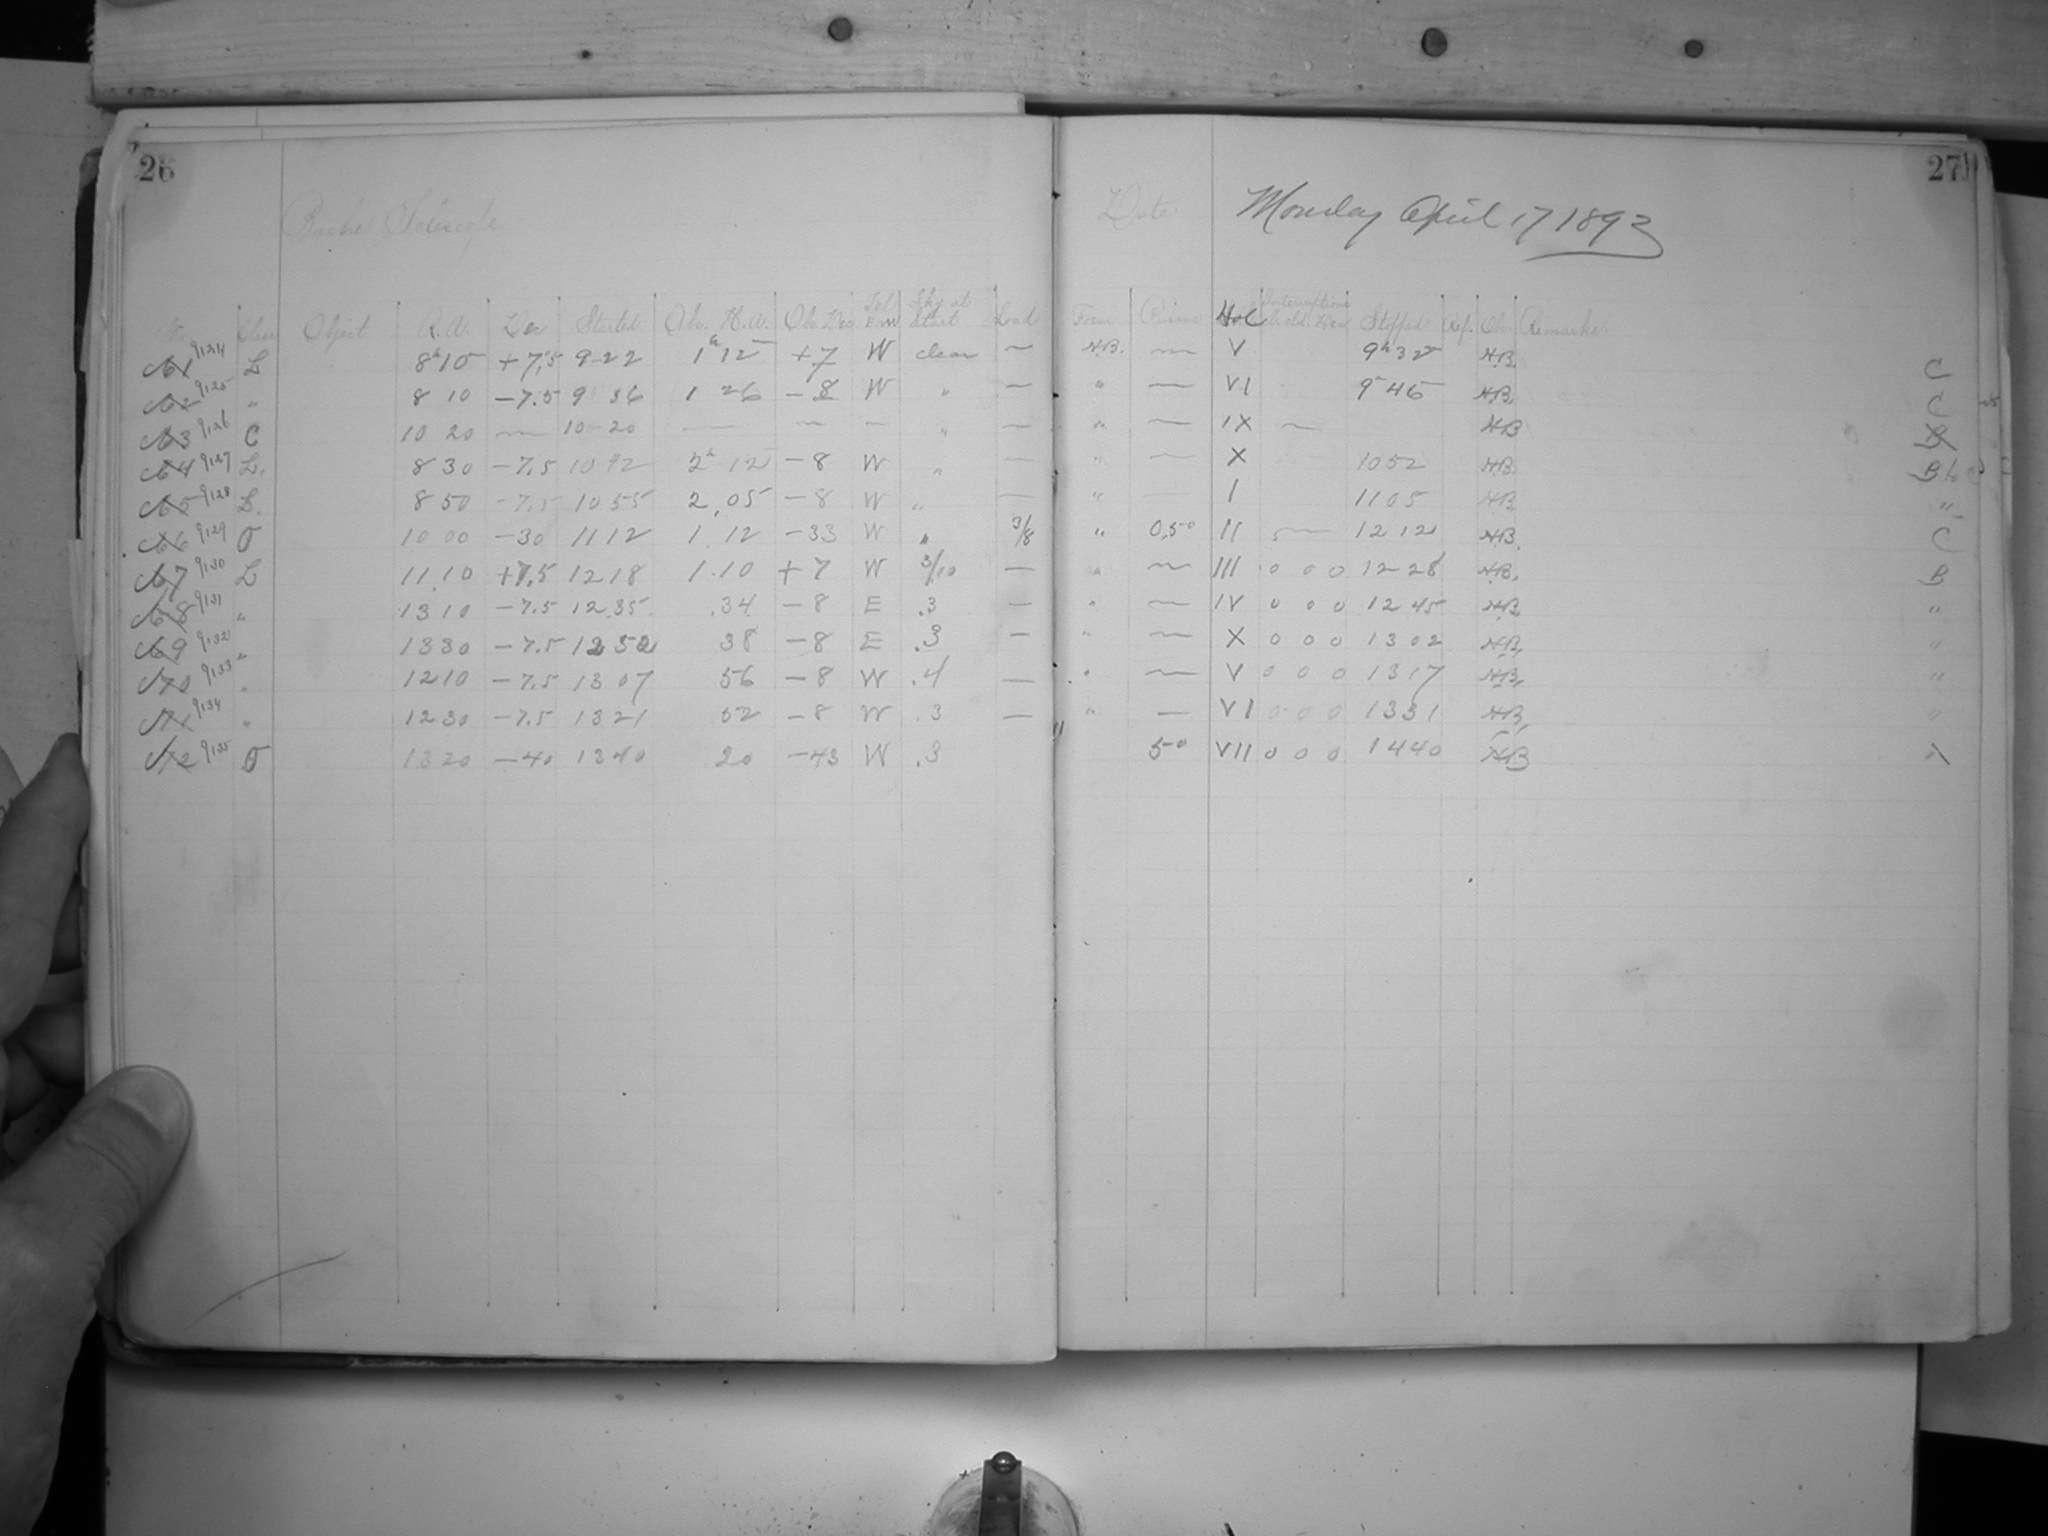 26
27
Bache Telescope
Date Monday April 17 1893
No. Class Object R.A. Dec Started Obs. H.A. Obs. Dec Tel E or W Sky at Start Load Focus Prisms Hol Interruptions Stopped Ref. Obs. Remarks
61 9124 L 8h 10 +7.5 9 22 1h 12 +7 W clear — H.B. — V 9h 32 H.B. C
62 9125 " 8 10 -7.5 9 36 1 26 -8 W " — " — VI 9 46 H.B. C
63 9126 C 10 20 — 10 20 — — — " — " — IX — H.B B
64 9127 L. 8 30 -7.5 10 42 2h 12 -8 W " — " — X 10 52 H.B. B
65 9128 L. 8 50 -7.5 10 55 2 05 -8 W " — " — I 11 05 H.B. "
66 9129 O 10 00 -30 11 12 1 12 -33 W " 3/8 " 0.50 II — 12 12 H.B. C
67 9130 L 11 10 +7.5 12 18 1 10 +7 W 3/10 — " — III 0 0 0 12 28 H.B. B
68 9131 " 13 10 -7.5 12 35 34 -8 E .3 — " — IV 0 0 0 12 45 H.B. "
69 9132 " 13 30 -7.5 12 52 38 -8 E .3 — " — X 0 0 0 13 02 H.B. "
70 9133 " 12 10 -7.5 13 07 56 -8 W .4 — " — V 0 0 0 13 17 H.B. "
71 9134 " 12 30 -7.5 13 21 52 -8 W .3 — " — VI 0 0 0 13 31 H.B. "
72 9135 O 13 20 -40 13 40 20 -43 W .3 50 VII 0 0 0 14 40 H.B "